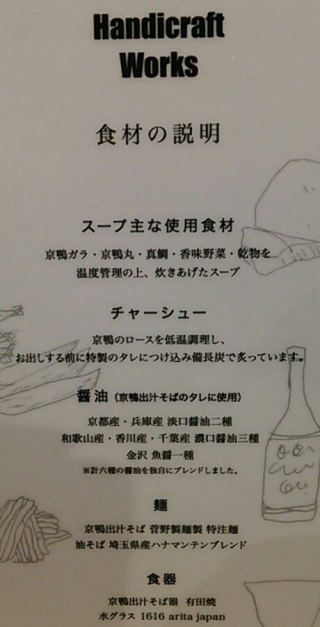 Handicraft
Works
食材の説明
スープ主な使用食材
京鴨ガラ・京鴨丸・真鯛・香味野菜・乾物を
温度管理の上、炊きあげたスープ
チャーシュー
京鴨のロースを低温調理し、
お出しする前に特製のタレにつけ込み備長炭で炙っています。
醤油（京鴨出汁そばのタレに使用）
京都産・兵庫産 淡口醤油二種
和歌山産・香川産・千葉産 濃口醤油三種
金沢 魚醤一種
※計六種の醤油を独自にブレンドしました。
麺
京鴨出汁そば 菅野製麺製 特注麺
油そば 埼玉県産ハナマンテンブレンド
食器
京鴨出汁そば器 有田焼
水グラス 1616 arita japan